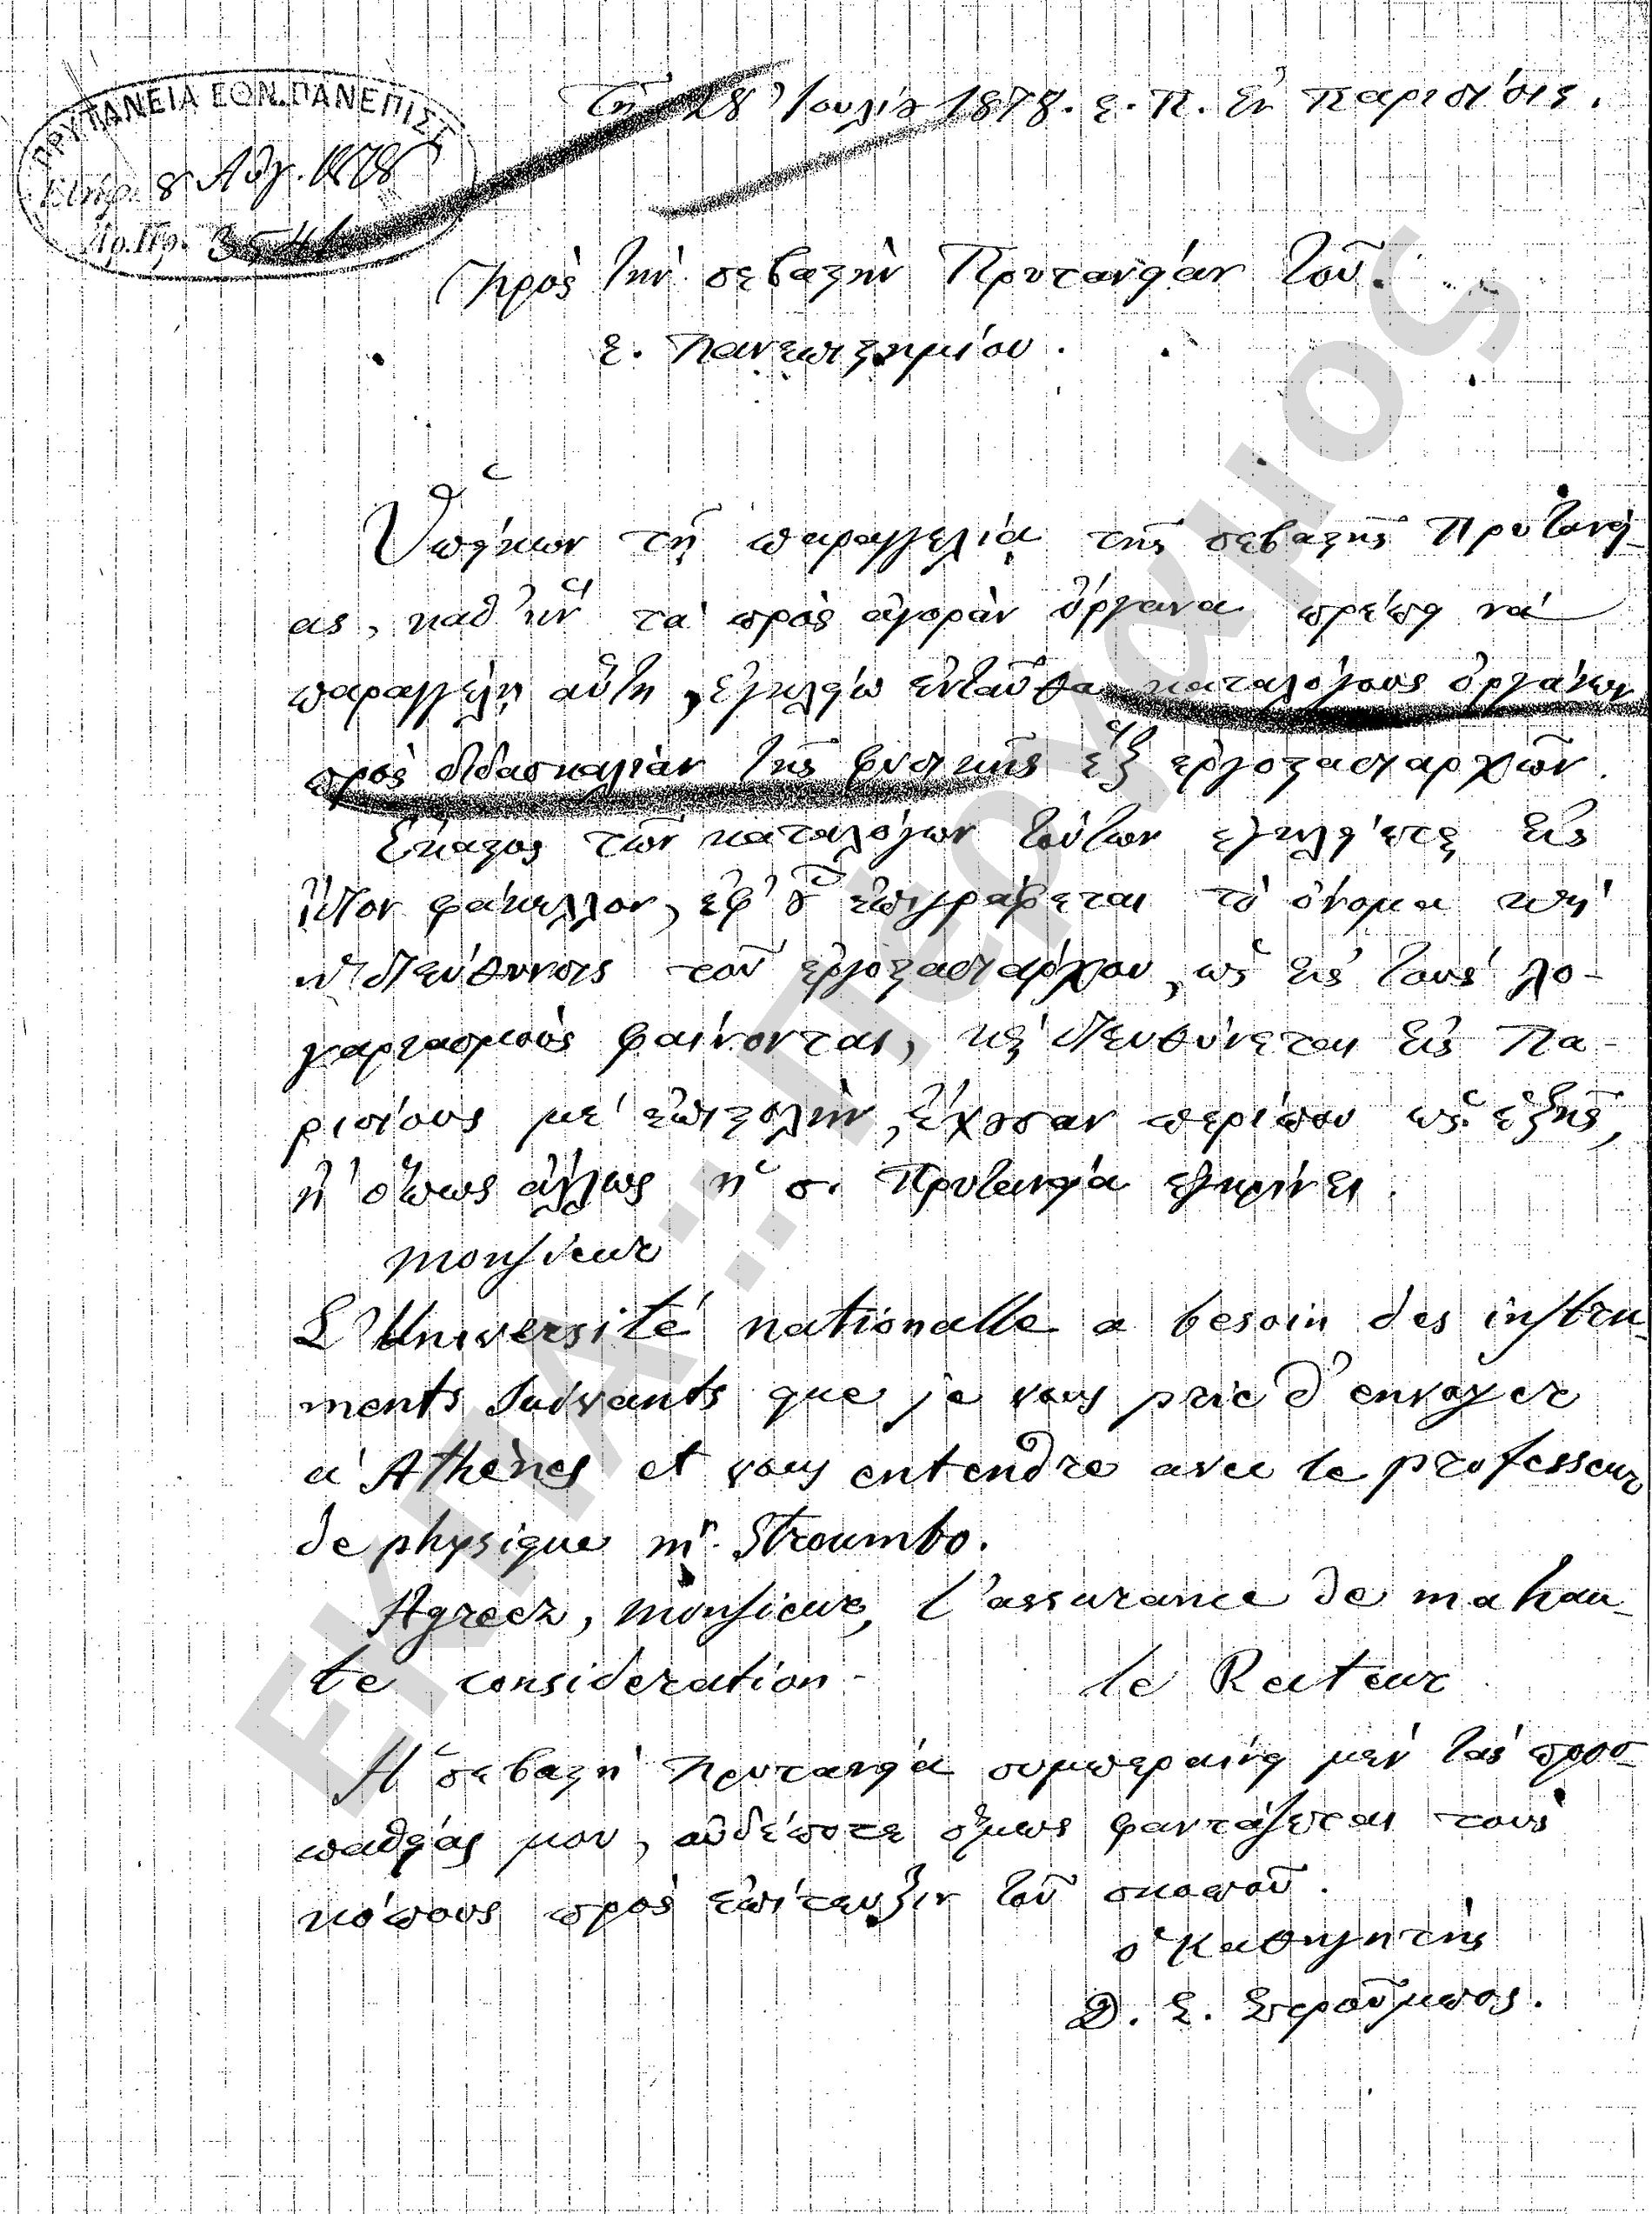 ΠΡΥΤΑΝΕΙΑ ΕΘΝ. ΠΑΝΕΠΙΣΤ.
Ἐλήφ. 8 Αὐγ. 1878
Ἀρ. Πρ. 3541
Τῇ 28 Ἰουλίου 1878. ἐ. π. Ἐν Παρισίοις.
Πρὸς τὴν σεβαστὴν Πρυτανείαν τοῦ
ἐ. Πανεπιστημίου.
Ὑπείκων τῇ παραγγελίᾳ τῆς σεβαστῆς Πρυτανεί-
ας, καθ' ἣν τὰ πρὸς ἀγορὰν ὄργανα πρέπει νὰ
παραγγείλῃ αὕτη, ἐγκλείω ἐνταῦθα καταλόγους ὀργάνων
πρὸς διδασκαλίαν τῆς φυσικῆς ἓξ ἐργοστασιαρχῶν.
Ἕκαστος τῶν καταλόγων τούτων ἐγκλείεται εἰς
ἴδιον φάκελλον, ἐφ' οὗ ἐπιγράφεται τὸ ὄνομα καὶ
ἡ διεύθυνσις τοῦ ἐργοστασιάρχου, ὡς εἰς τοὺς λο-
γαριασμοὺς φαίνονται, καὶ διευθύνεται εἰς Πα-
ρισίους μὲ ἐπιστολὴν, ἔχουσαν περίπου ὡς ἑξῆς,
ἢ ὅπως ἄλλως ἡ σ. Πρυτανεία ἐγκρίνει.
Monsieur
L'Université nationalle a besoin des instru-
ments suivants que je vous prie d'envoyer
a Athènes et vous entendre avec le professeur
de physique mr. Stroumbo.
Agreez, monsieur, l'assurance de ma hau-
te consideration. le Recteur
Ἡ σεβαστὴ Πρυτανεία συμπεραίνει μὲν τὰς προσ-
παθείας μου, οὐδέποτε ὅμως φαντάζεται τοὺς
κόπους πρὸς ἐπίτευξιν τοῦ σκοποῦ.
ὁ Καθηγητὴς
Δ. Σ. Στροῦμπος.
ΕΚΠΑ:: Πέργαμος